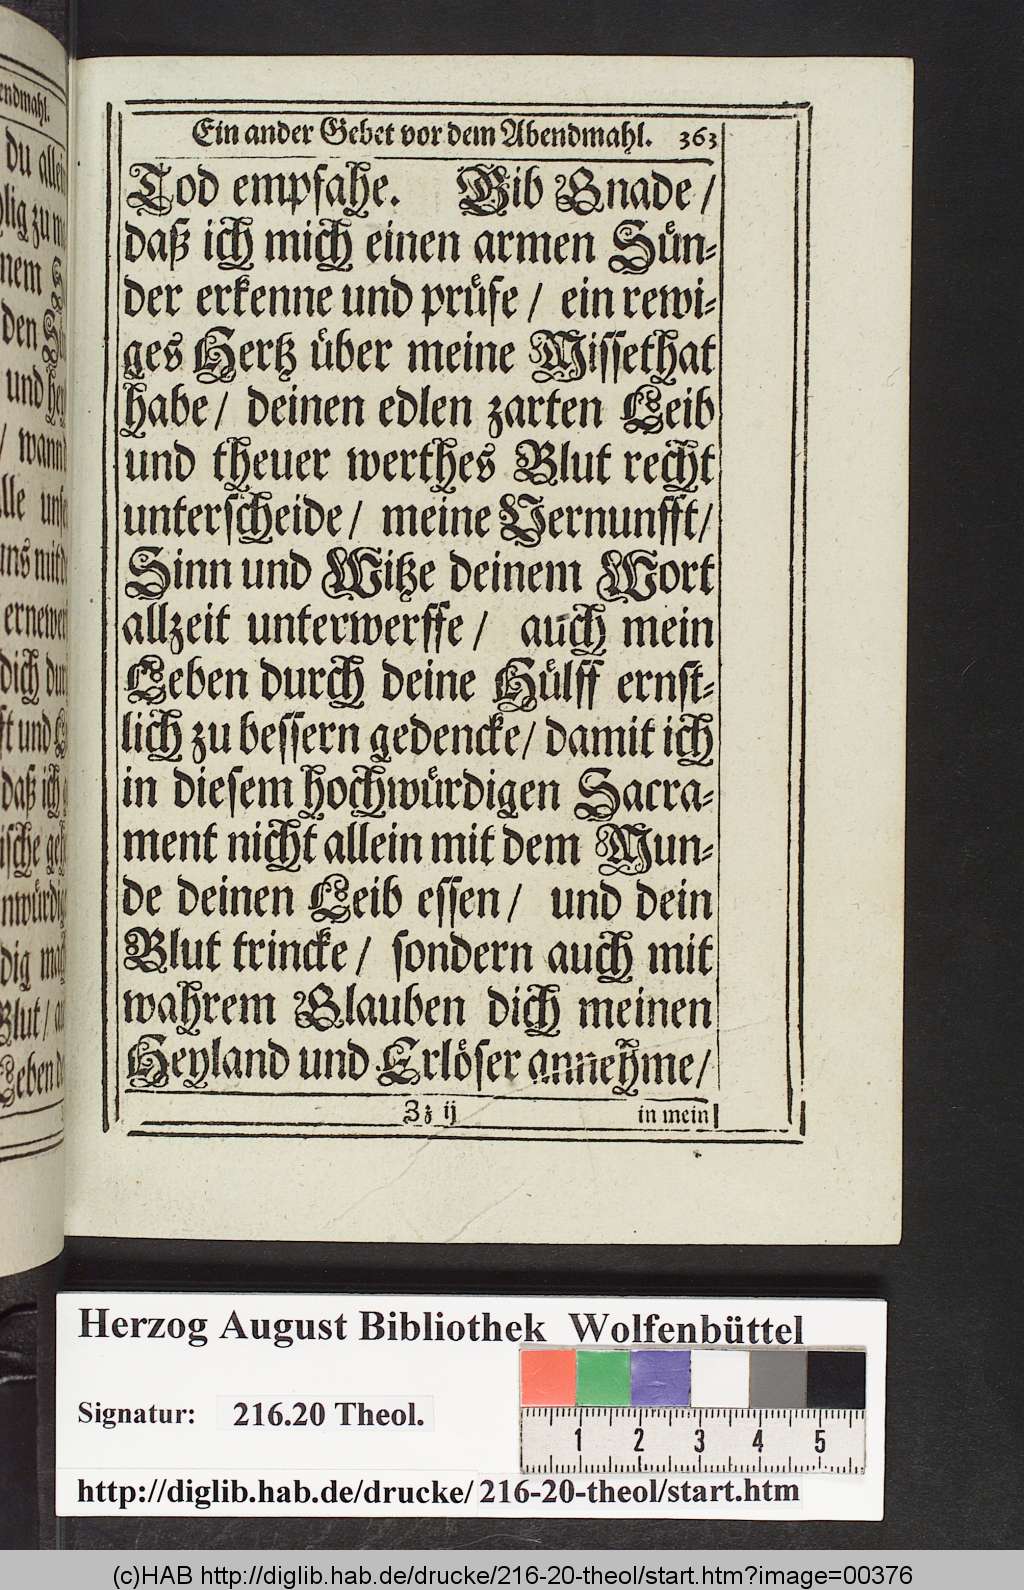 endmahl.
du allein
lig zu
nem
den
und
/ wann
alle unser
uns mit
ernewer
dich
ft und
daß ich
ische
nwürdig
dig
Blut/
Leben
Ein ander Gebet vor dem Abendmahl. 363
Tod empfahe. Gib Gnade /
daß ich mich einen armen Sün-
der erkenne und prüfe / ein rewi-
ges Hertz über meine Missethat
habe/ deinen edlen zarten Leib
und theuer werthes Blut recht
unterscheide/ meine Vernunfft/
Sinn und Witze deinem Wort
allzeit unterwerffe / auch mein
Leben durch deine Hülff ernst-
lich zu bessern gedencke/ damit ich
in diesem hochwürdigen Sacra-
ment nicht allein mit dem Mun-
de deinen Leib essen / und dein
Blut trincke / sondern auch mit
wahrem Glauben dich meinen
Heyland und Erlöser annehme/
Zz ij in mein
Herzog August Bibliothek Wolfenbüttel
Signatur: 216.20 Theol.
1 2 3 4 5
http://diglib.hab.de/drucke/216-20-theol/start.htm
(c)HAB http://diglib.hab.de/drucke/216-20-theol/start.htm?image=00376